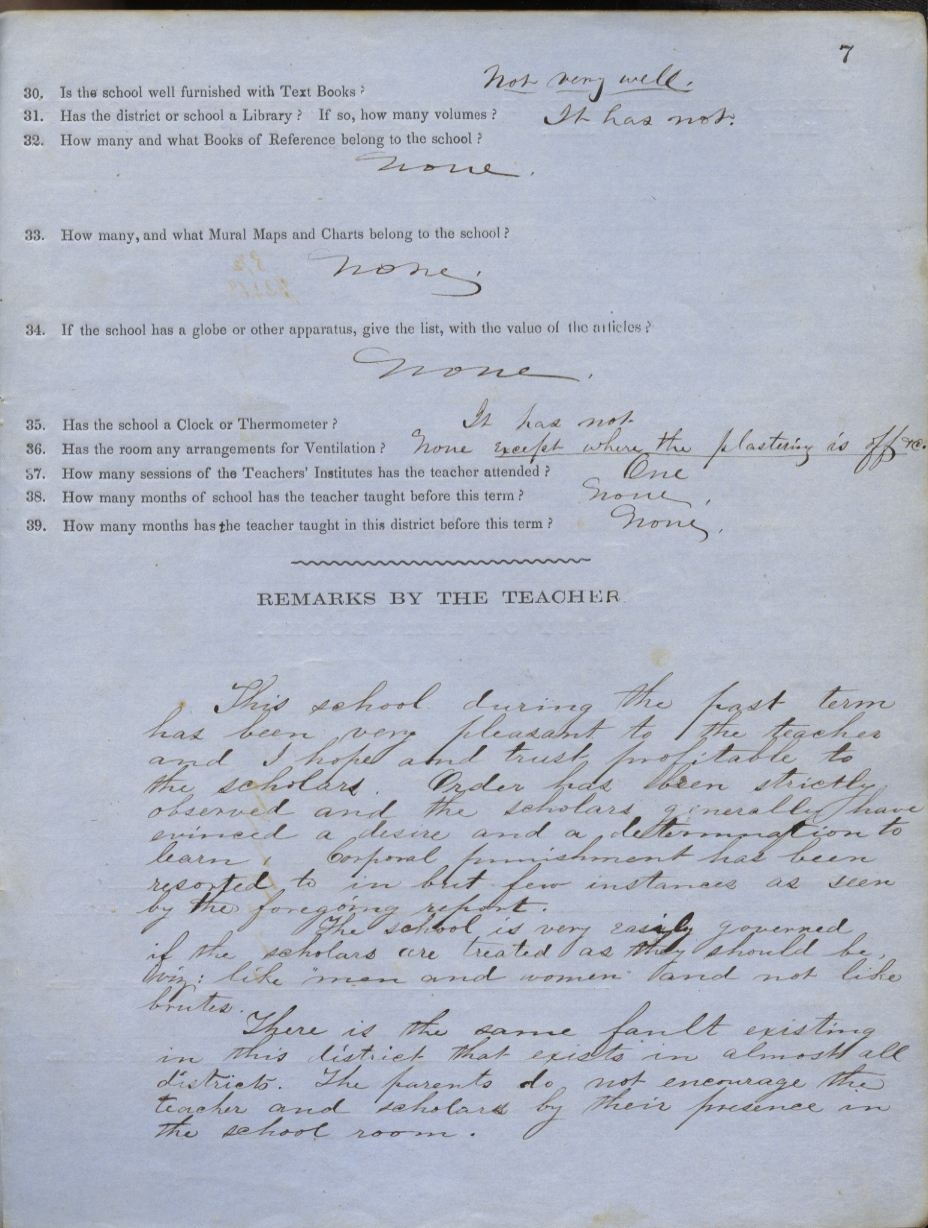 7
30. Is the school well furnished with Text Books? Not very well.
31. Has the district or school a Library? If so, how many volumes? It has not.
32. How many and what Books of Reference belong to the school?
None.
33. How many, and what Mural Maps and Charts belong to the school?
None.
34. If the school has a globe or other apparatus, give the list, with the value of the articles?
None.
35. Has the school a Clock or Thermometer? It has not.
36. Has the room any arrangements for Ventilation? None except where the plastering is off &c.
37. How many sessions of the Teachers' Institutes has the teacher attended? One
38. How many months of school has the teacher taught before this term? None.
39. How many months has the teacher taught in this district before this term? None.
REMARKS BY THE TEACHER
This school during the past term
has been very pleasant to the teacher
and I hope and trust profitable to
the scholars. Order has been strictly
observed and the scholars generally have
evinced a desire and a determination to
learn. Corporal punishment has been
resorted to in but few instances as seen
by the foregoing report.
The school is very easily governed
if the scholars are treated as they should be,
viz: like "men and women" and not like
brutes.
There is the same fault existing
in this district that exists in almost all
districts. The parents do not encourage the
teacher and scholars by their presence in
the school room.